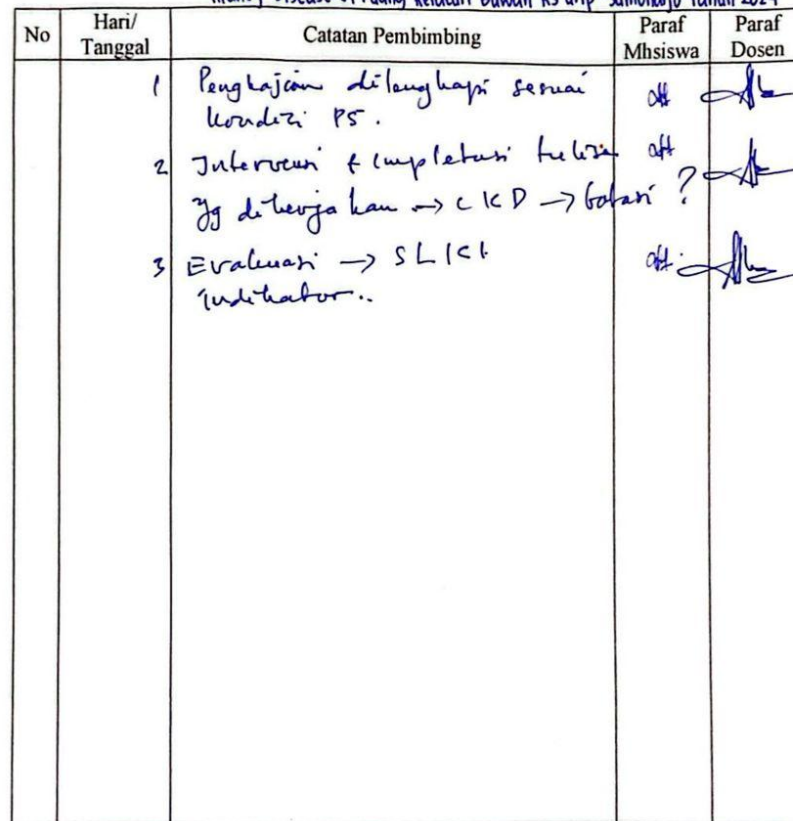 Kidney Disease di Ruang Kelulan Bawah RS drip Sumoharjo Tahun 2024
No Hari/ Tanggal Catatan Pembimbing Paraf Mhsiswa Paraf Dosen
1 Pengkajian dilengkapi sesuai
kondisi PS.
2 Intervensi & implentasi tulisa
yg dikerjakan → CKD → batasi ?
3 Evaluasi → SLKI
indikator..